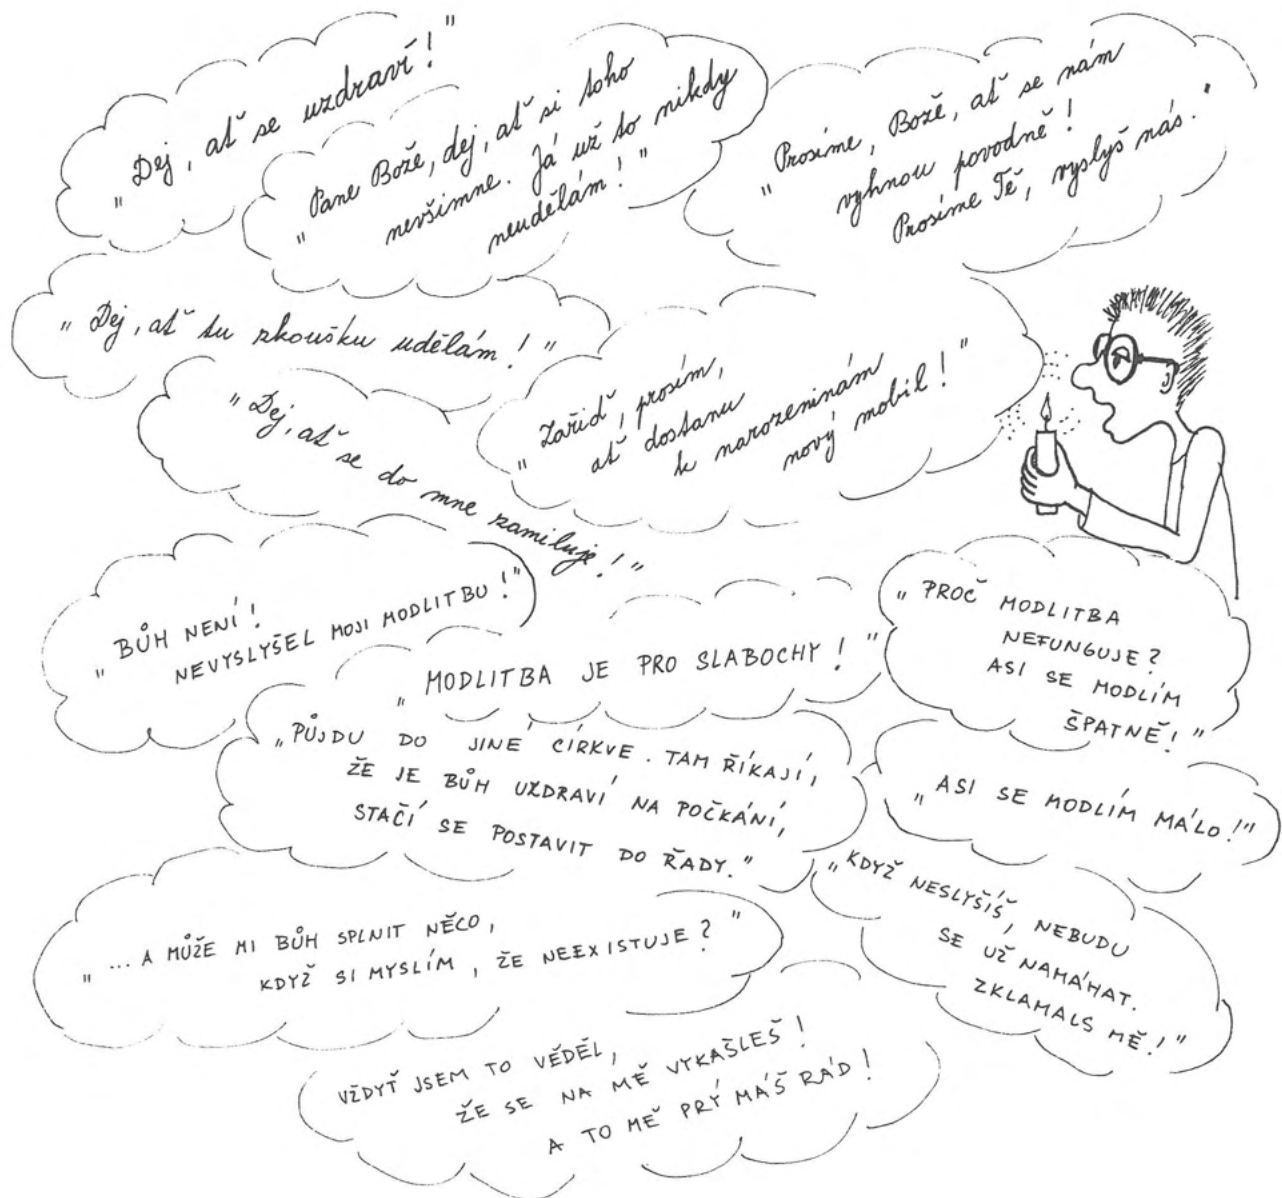 „Dej, ať se uzdraví!"
„Pane Bože, dej, ať si toho
nevšimne. Já už to nikdy
neudělám!"
„Prosíme, Bože, ať se nám
vyhnou povodně!
Prosíme Tě, vyslyš nás."
„Dej, ať tu zkoušku udělám!"
„Dej, ať se do mne zamiluje!"
„Zařiď, prosím,
ať dostanu
k narozeninám
nový mobil!"
„BŮH NENÍ!
NEVYSLYŠEL MOJI MODLITBU!"
„MODLITBA JE PRO SLABOCHY!"
„PROČ MODLITBA
NEFUNGUJE?
ASI SE MODLÍM
ŠPATNĚ!"
„PŮJDU DO JINÉ CÍRKVE. TAM ŘÍKAJÍ,
ŽE JE BŮH UZDRAVÍ NA POČKÁNÍ,
STAČÍ SE POSTAVIT DO ŘADY."
„ASI SE MODLÍM MÁLO!"
„KDYŽ NESLYŠÍŠ, NEBUDU
SE UŽ NAMÁHAT.
ZKLAMALS MĚ!"
„... A MŮŽE MI BŮH SPLNIT NĚCO,
KDYŽ SI MYSLÍM, ŽE NEEXISTUJE?"
VŽDYŤ JSEM TO VĚDĚL,
ŽE SE NA MĚ VYKAŠLEŠ!
A TO MĚ PRÝ MÁŠ RÁD!